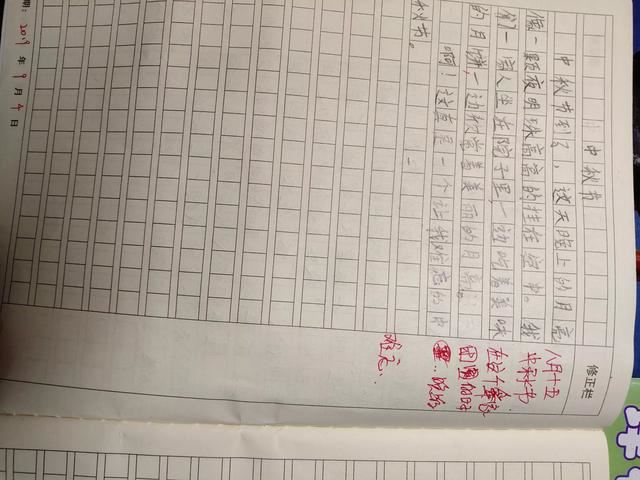 中秋节
中秋节到了，这天晚上的月亮
像一颗夜明珠高高的挂在空中。我
们一家人坐在院子里，一边吃着美味
的月饼，一边欣赏着美丽的月亮。
啊！这真是一个让我难忘的中
秋节。
修正栏
八月十五
中秋节
在这个
难忘
期：2019年9月4日